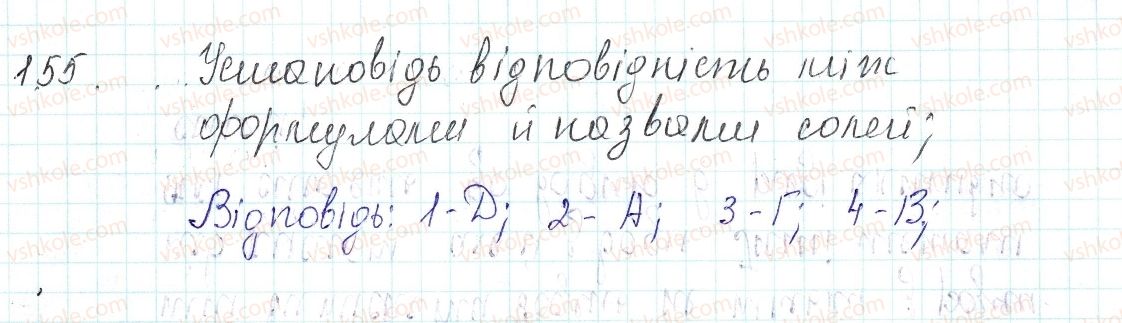 155. Установідь відповідність між
формулами й назвами солей;
Відповідь: 1-Д; 2-А; 3-Г; 4-В;